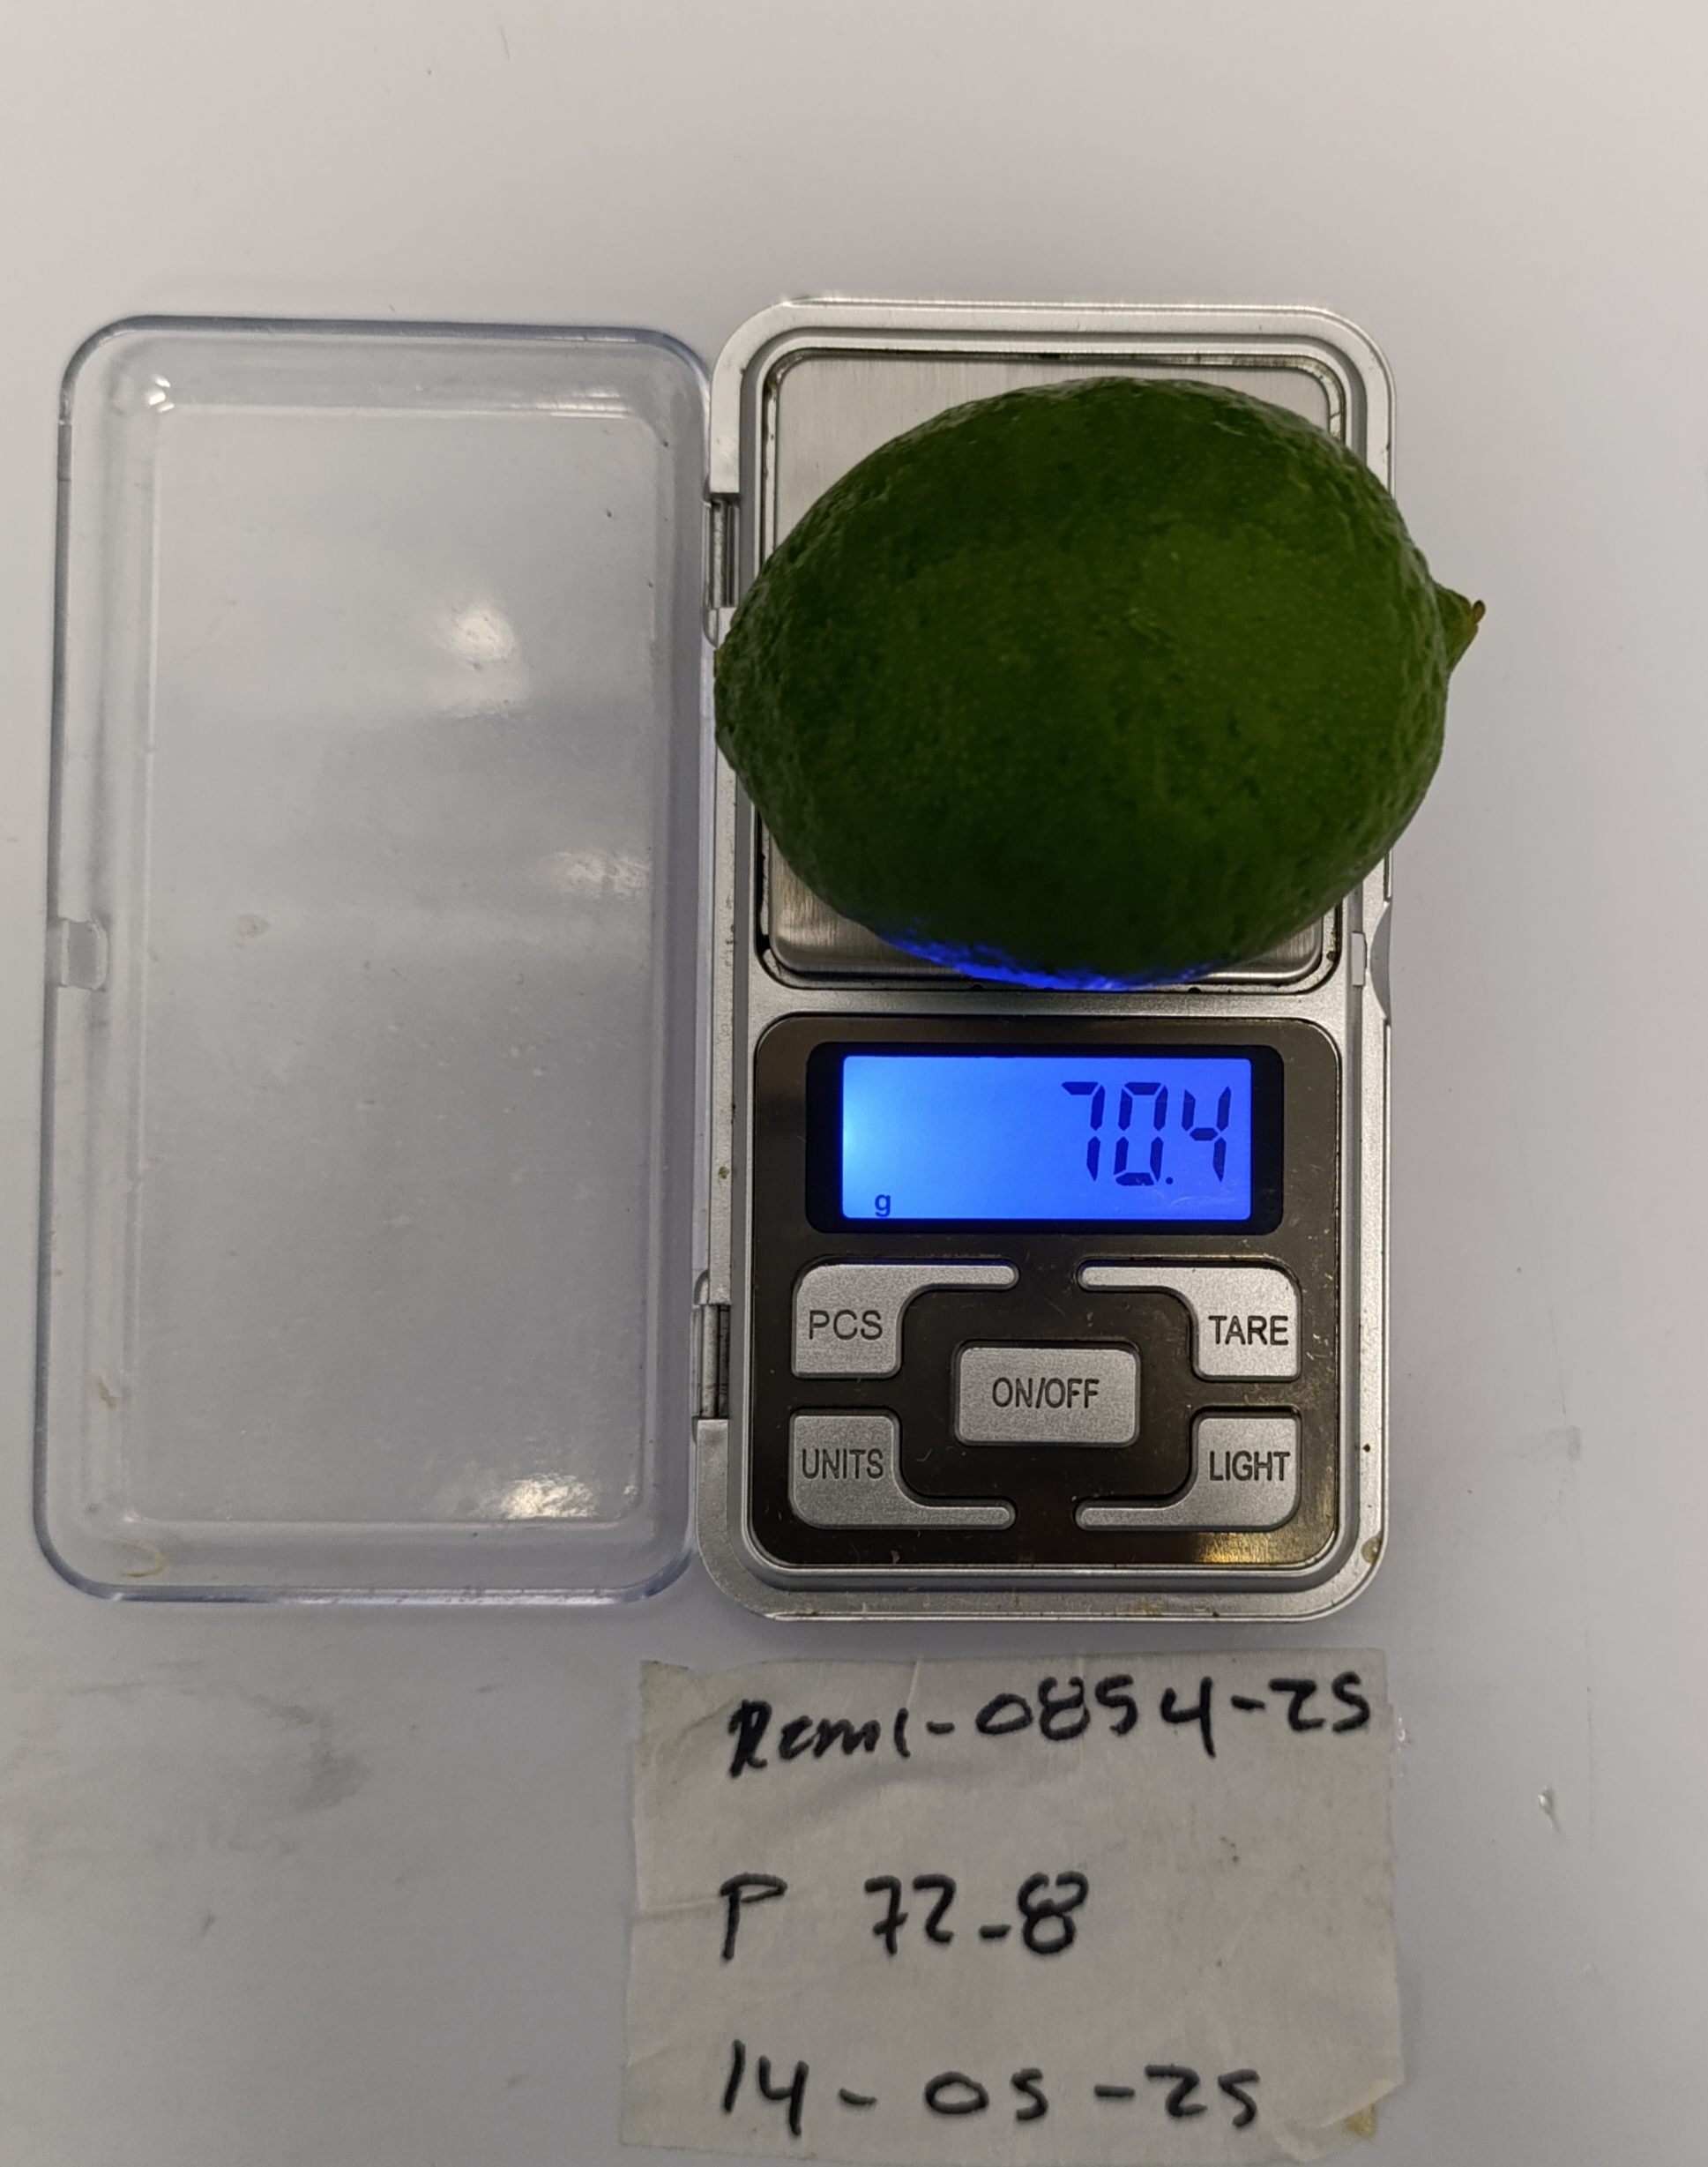 70.4
g
PCS
TARE
ON/OFF
UNITS
LIGHT
Rcm1-0854-25
P 72-8
14-05-25